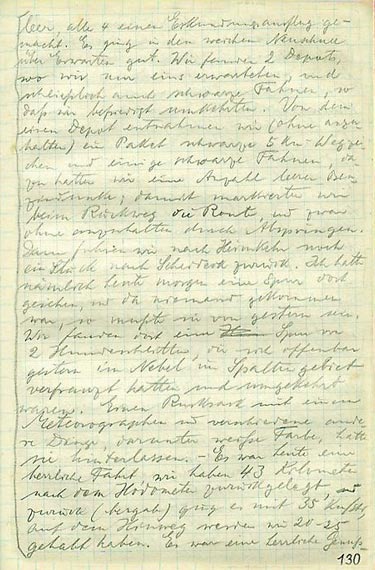 leer, alle 4 einen Erkundungsausflug ge-
macht. Es ging in den weichen Neuschnee
über Erwarten gut. Wir fanden 2 Depots,
wo wir nur eins erwarteten, und
schliesslich auch schwarze Fahnen, so
daß wir befriedigt umkehrten. Von dem
einen Depot entnahmen wir (ohne anzu-
halten) ein Paket schwarze 5 km Wegzei-
chen und einige schwarze Fahnen, da
zu hatten wir eine Anzahl leere Ben-
zindunks, damit markierten wir
beim Rückweg die Route, und zwar
ohne anzuhalten durch Abspringen.
Dann fuhren wir nach Heimkehr noch
ein Stück nach Scheideck zurück. Ich hatte
nämlich heute morgen eine Spur dort
gesehen, und da niemand gekommen
war, so mußte sie von gestern sein.
Wir fanden dort eine Spur von
2 Hundeschlitten, die sich offenbar
gestern im Nebel im Spaltengebiet
verfranzt hatten und umgekehrt
waren. Einen Rucksack mit einem
Meteorographen und verschiedene ande
re Dinge, darunter weiße Farbe, hatte
sie hinterlassen. – Es war heute eine
herrliche Fahrt, wir haben 43 Kilometer
nach dem Hodometer zurückgelegt, und
zurück (bergab) ging es mit 35 km/Std,
auf dem Hinweg werden wir 20-25
gehabt haben. Es war eine herrliche Genuss-
130